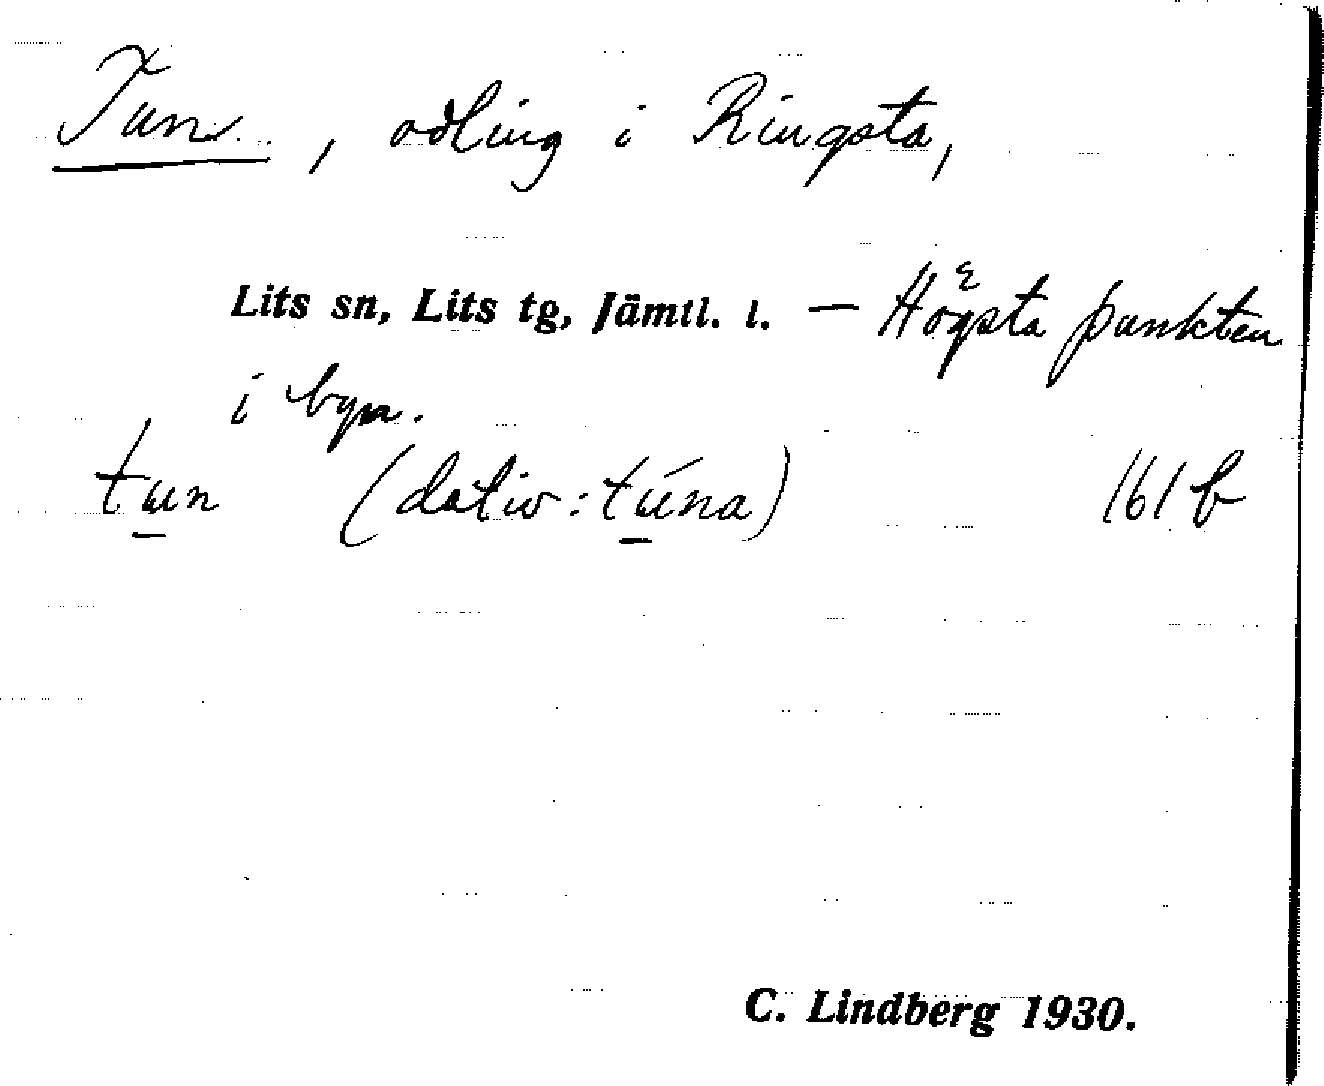 Tun, odling i Ringsta,
Lits sn, Lits tg, Jämtl. l. — Högsta punkten
i byn.
tu̲n (dativ: tú̲na) 161 b
C. Lindberg 1930.